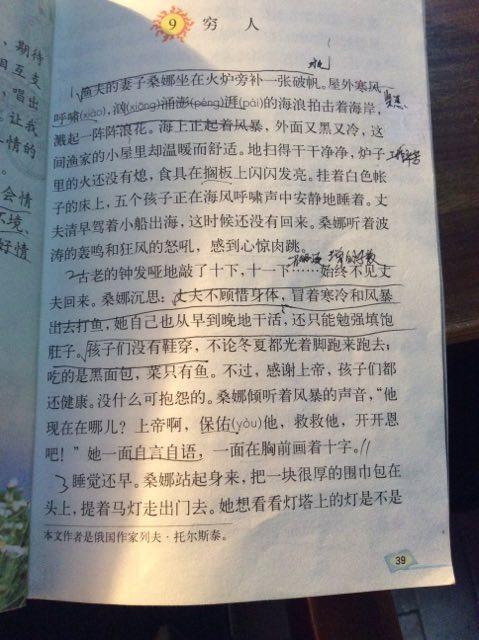 9 穷人
渔夫的妻子桑娜坐在火炉旁补一张破帆。屋外寒风
呼啸(xiào)，汹(xiōng)涌澎(péng)湃(pài)的海浪拍击着海岸，
溅起一阵阵浪花。海上正起着风暴，外面又黑又冷，这
间渔家的小屋里却温暖而舒适。地扫得干干净净，炉子
里的火还没有熄，食具在搁板上闪闪发亮。挂着白色帐
子的床上，五个孩子正在海风呼啸声中安静地睡着。丈
夫清早驾着小船出海，这时候还没有回来。桑娜听着波
涛的轰鸣和狂风的怒吼，感到心惊肉跳。
2 古老的钟发哑地敲了十下，十一下……始终不见丈
夫回来。桑娜沉思：丈夫不顾惜身体，冒着寒冷和风暴
出去打鱼，她自己也从早到晚地干活，还只能勉强填饱
肚子。孩子们没有鞋穿，不论冬夏都光着脚跑来跑去；
吃的是黑面包，菜只有鱼。不过，感谢上帝，孩子们都
还健康。没什么可抱怨的。桑娜倾听着风暴的声音，“他
现在在哪儿？上帝啊，保佑(yòu)他，救救他，开开恩
吧！”她一面自言自语，一面在胸前画着十字。
3 睡觉还早。桑娜站起身来，把一块很厚的围巾包在
头上，提着马灯走出门去。她想看看灯塔上的灯是不是
本文作者是俄国作家列夫·托尔斯泰。
39
，期待
相互支
，唱出
让我
情的
会情
环境、
好情